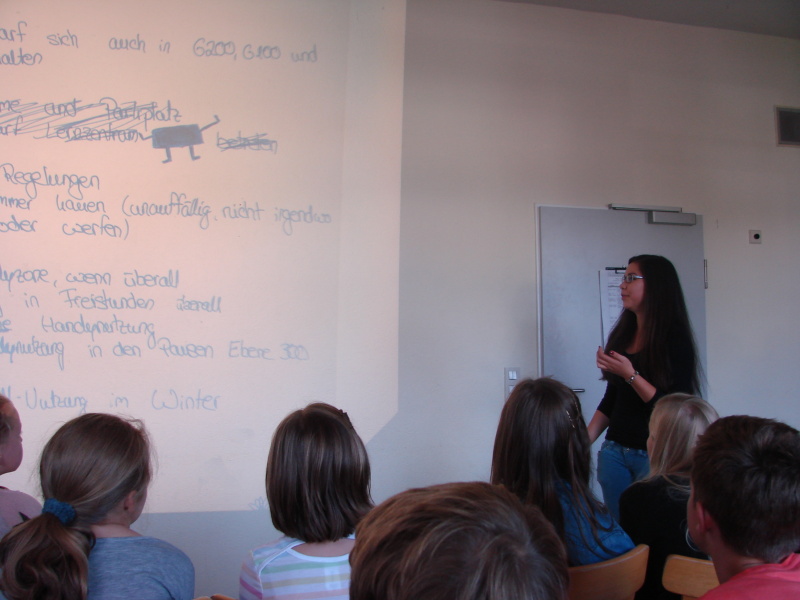 arf sich auch in G200, G100 und
halten
me und Parkplatz
arf Lernzentrum betreten
Regelungen
mmer kauen (unauffällig, nicht irgendwo
oder werfen)
dyzone, wenn überall
g in Freistunden überall
Handynutzung
dynutzung in den Pausen Ebene 300
Nutzung im Winter